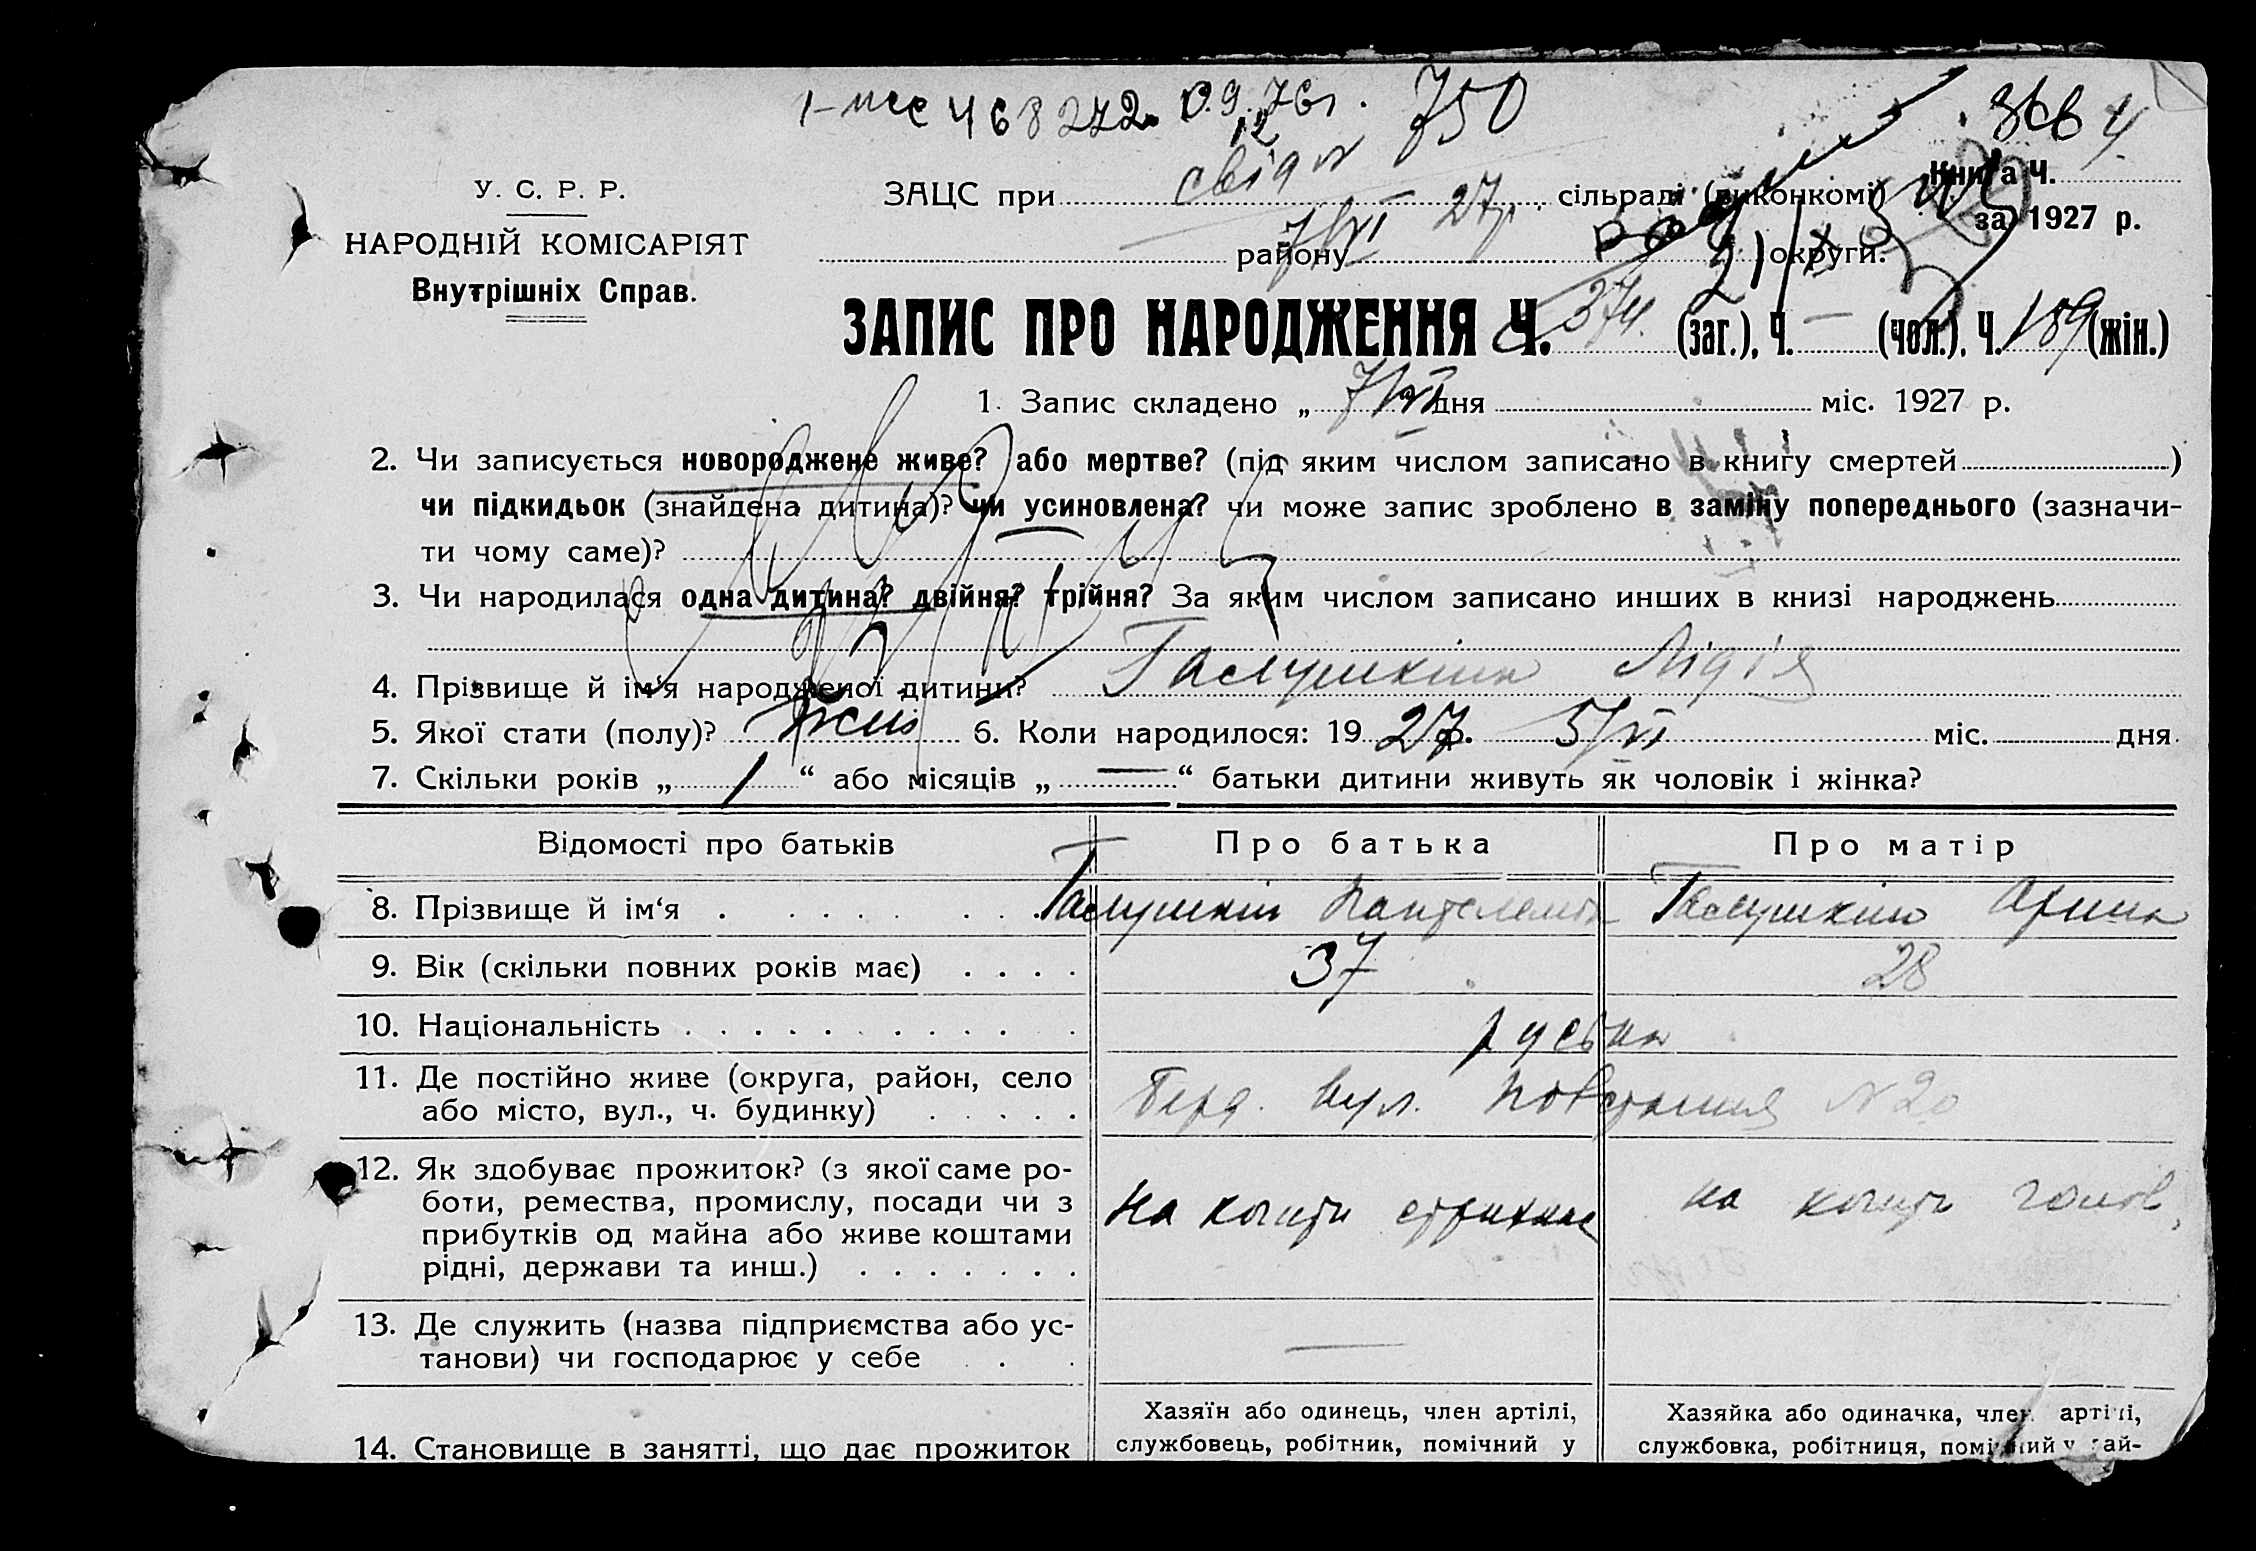 468272 0.9.76г. 750
свід №
7/VI 27р.
У. С. Р. Р.
НАРОДНІЙ КОМІСАРІЯТ
Внутрішніх Справ.
ЗАЦС при сільраді (виконкомі)
району округи.
Книга Ч.
за 1927 р.
ЗАПИС ПРО НАРОДЖЕННЯ Ч. 374 (заг.), Ч. — (чол.), Ч. 189 (жін.)
1. Запис складено „ 7/VI дня міс. 1927 р.
2. Чи записується новороджене живе? або мертве? (під яким числом записано в книгу смертей )
чи підкидьок (знайдена дитина)? чи усиновлена? чи може запис зроблено в заміну попереднього (зазначи-
ти чому саме)?
3. Чи народилася одна дитина? двійня? трійня? За яким числом записано инших в книзі народжень
4. Прізвище й ім'я народженої дитини? Галушкіна Лідія
5. Якої стати (полу)? жін 6. Коли народилося: 1927р. 5/VI міс. дня
7. Скільки років „ 1 “ або місяців „ — “ батьки дитини живуть як чоловік і жінка?
Відомості про батьків Про батька Про матір
8. Прізвище й ім‘я . . . . . . . Галушкін Пантелемон Галушкіна Арина
9. Вік (скільки повних років має) . . . . 37 28
10. Національність . . . . . . . . . .
11. Де постійно живе (округа, район, село
або місто, вул., ч. будинку) . . . . . Берд. вул. Повстання №20
12. Як здобуває прожиток? (з якої саме ро-
боти, ремества, промислу, посади чи з
прибутків од майна або живе коштами
рідні, держави та инш.) . . . . . . . На кошти на кошти голов.
13. Де служить (назва підприємства або ус-
танови) чи господарює у себе . . —
14. Становище в занятті, що дає прожиток
Хазяїн або одинець, член артілі,
службовець, робітник, помічний у
Хазяйка або одиначка, член артілі,
службовка, робітниця, помічний у хай-